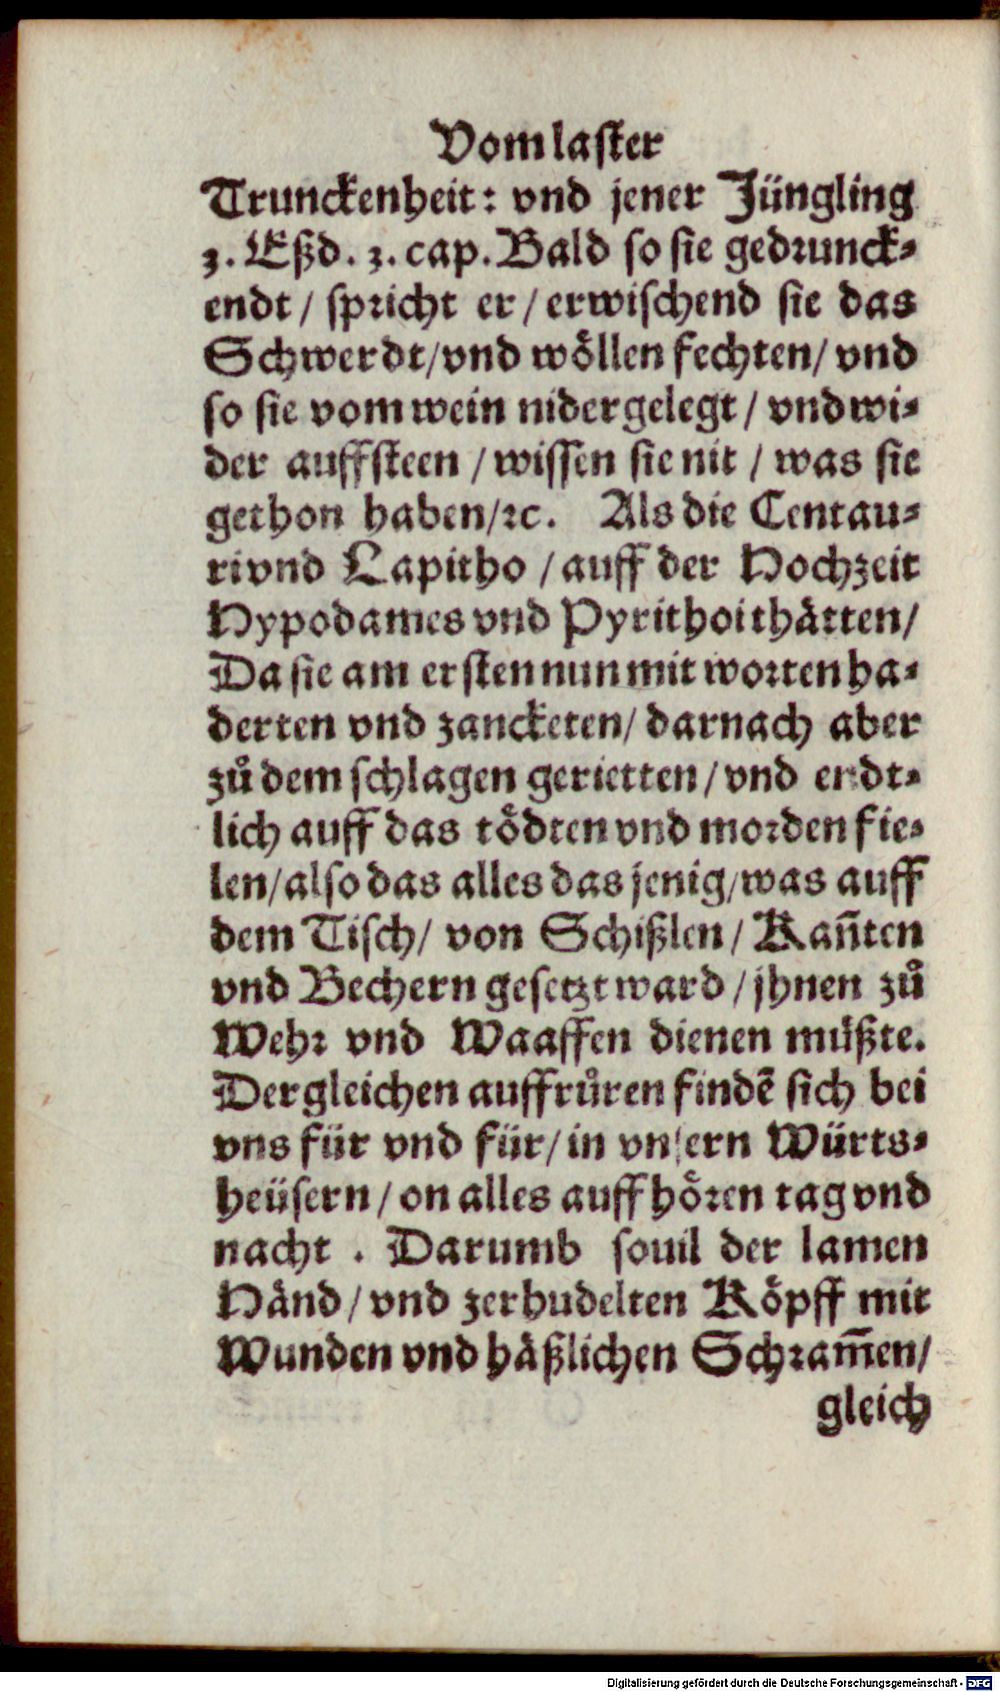 Vom laster
Trunckenheit: vnd jener Jüngling
3. Eßd. 3. cap. Bald so sie gedrunck-
endt / spricht er / erwischend sie das
Schwerdt/vnd wöllen fechten/ vnd
so sie vom wein nidergelegt / vnd wi-
der auffsteen / wissen sie nit / was sie
gethon haben/ꝛc. Als die Centau-
ri vnd Lapitho / auff der Hochzeit
Hypodames vnd Pyrithoi thätten/
Da sie am ersten nun mit worten ha-
derten vnd zancketen/ darnach aber
zů dem schlagen gerietten/vnd endt-
lich auff das tödten vnd morden fie-
len/also das alles das jenig/was auff
dem Tisch/ von Schißlen/ Kañten
vnd Bechern gesetzt ward / jhnen zů
Wehr vnd Waaffen dienen müßte.
Dergleichen auffrůren findē sich bei
vns für vnd für/ in vnsern Würts-
heüsern/ on alles auffhören tag vnd
nacht . Darumb souil der lamen
Händ/ vnd zerhudelten Köpff mit
Wunden vnd häßlichen Schram̄en/
gleich
Digitalisierung gefördert durch die Deutsche Forschungsgemeinschaft - DFG